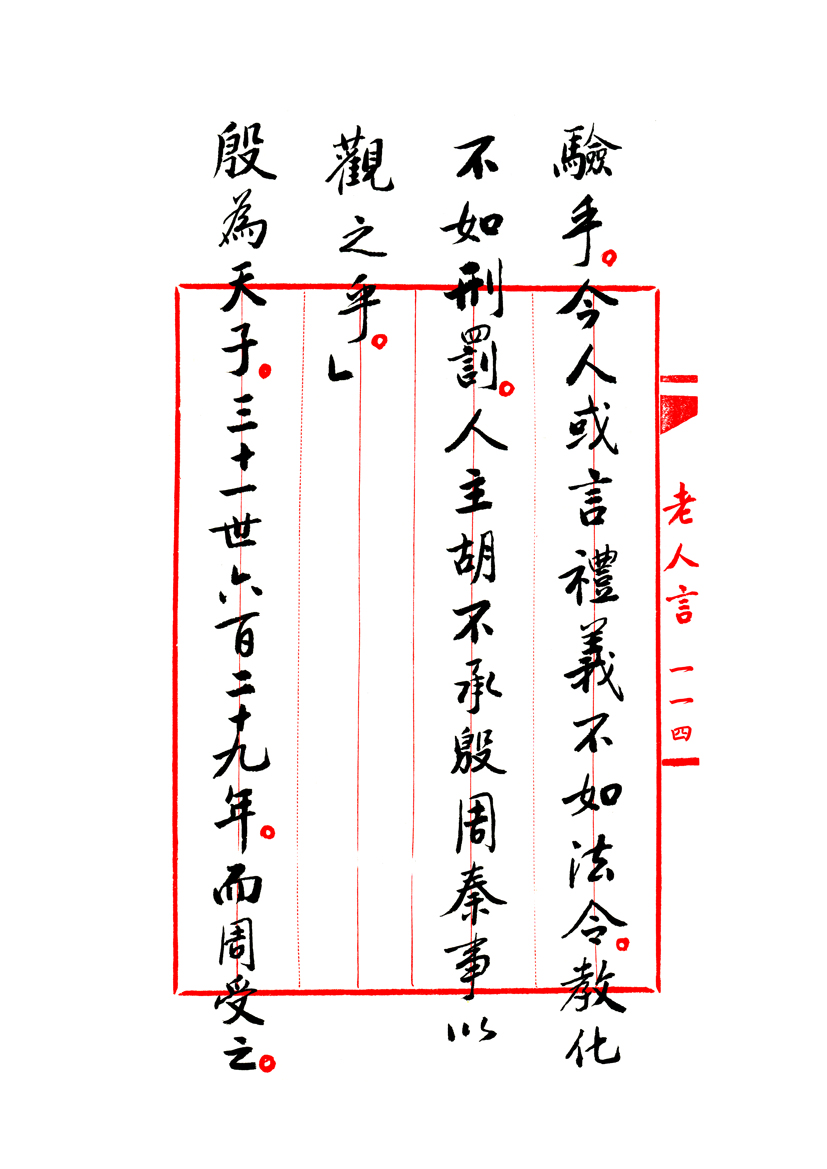 驗乎。今人或言禮義不如法令。教化
不如刑罰。人主胡不承殷周秦事以
觀之乎。」
殷為天子。三十一世六百二十九年。而周受之。
老人言 一一四